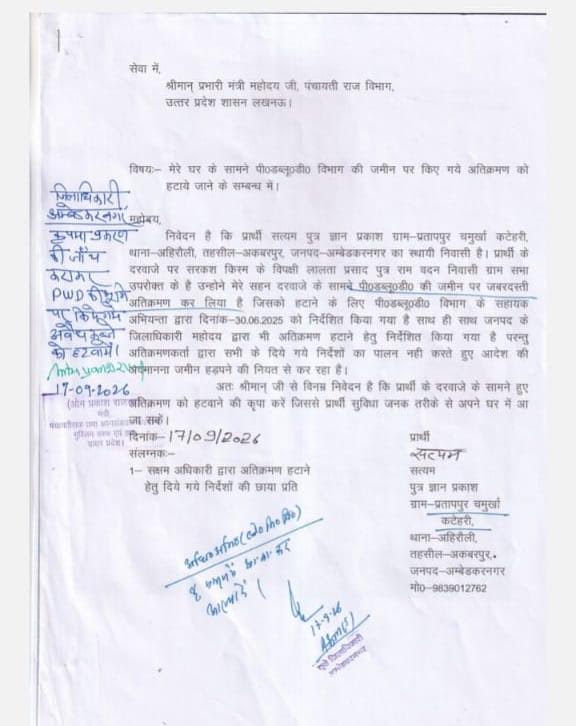 सेवा में,
श्रीमान् प्रभारी मंत्री महोदय जी, पंचायती राज विभाग,
उत्तर प्रदेश शासन लखनऊ।
विषयः– मेरे घर के सामने पी०डब्लू०डी० विभाग की जमीन पर किए गये अतिक्रमण को
हटाये जाने के सम्बन्ध में।
महोदय,
निवेदन है कि प्रार्थी सत्यम पुत्र ज्ञान प्रकाश ग्राम–प्रतापपुर चमुर्खा कटेहरी,
थाना–अहिरौली, तहसील–अकबरपुर, जनपद–अम्बेडकरनगर का स्थायी निवासी है। प्रार्थी के
दरवाजे पर सरकश किस्म के विपक्षी लालता प्रसाद पुत्र राम वदन निवासी ग्राम सभा
उपरोक्त के है उन्होने मेरे सहन दरवाजे के सामने पी०डब्लू०डी० की जमीन पर जबरदस्ती
अतिक्रमण कर लिया है जिसको हटाने के लिए पी०डब्लू०डी० विभाग के सहायक
अभियन्ता द्वारा दिनांक–30.06.2025 को निर्देशित किया गया है साथ ही साथ जनपद के
जिलाधिकारी महोदय द्वारा भी अतिक्रमण हटाने हेतु निर्देशित किया गया है परन्तु
अतिक्रमणकर्ता द्वारा सभी के दिये गये निर्देशों का पालन नही करते हुए आदेश की
अवमानना जमीन हड़पने की नियत से कर रहा है।
अतः श्रीमान् जी से विनम्र निवेदन है कि प्रार्थी के दरवाजे के सामने हुए
अतिक्रमण को हटवाने की कृपा करें जिससे प्रार्थी सुविधा जनक तरीके से अपने घर में आ
जा सकें।
दिनांक– 17/09/2026
संलग्नक:–
1– सक्षम अधिकारी द्वारा अतिक्रमण हटाने
हेतु दिये गये निर्देशों की छाया प्रति
प्रार्थी
सत्यम
सत्यम
पुत्र ज्ञान प्रकाश
ग्राम–प्रतापपुर चमुर्खा
कटेहरी,
थाना–अहिरौली,
तहसील–अकबरपुर,
जनपद–अम्बेडकरनगर
मो०–9839012762
जिलाधिकारी,
अम्बेडकरनगर,
कृपया प्रकरण
की जाँच
कराकर
PWD की भूमि
पर किये गये
अवैध कब्जे
को हटवायें।
17-09-2026
(ओम प्रकाश राजभर)
मंत्री,
17-9-26